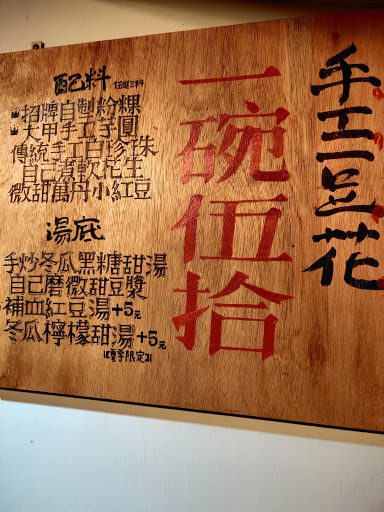 手工豆花
一碗伍拾
配料 任選三料
招牌自製粉粿
大甲手工芋圓
傳統手工白珍珠
自己煮軟花生
微甜萬丹小紅豆
湯底
手炒冬瓜黑糖甜湯
自己磨微甜豆漿
補血紅豆湯+5元
冬瓜檸檬甜湯+5元
(夏季限定)